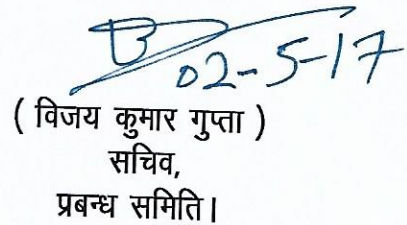 02-5-17
( विजय कुमार गुप्ता )
सचिव,
प्रबन्ध समिति।